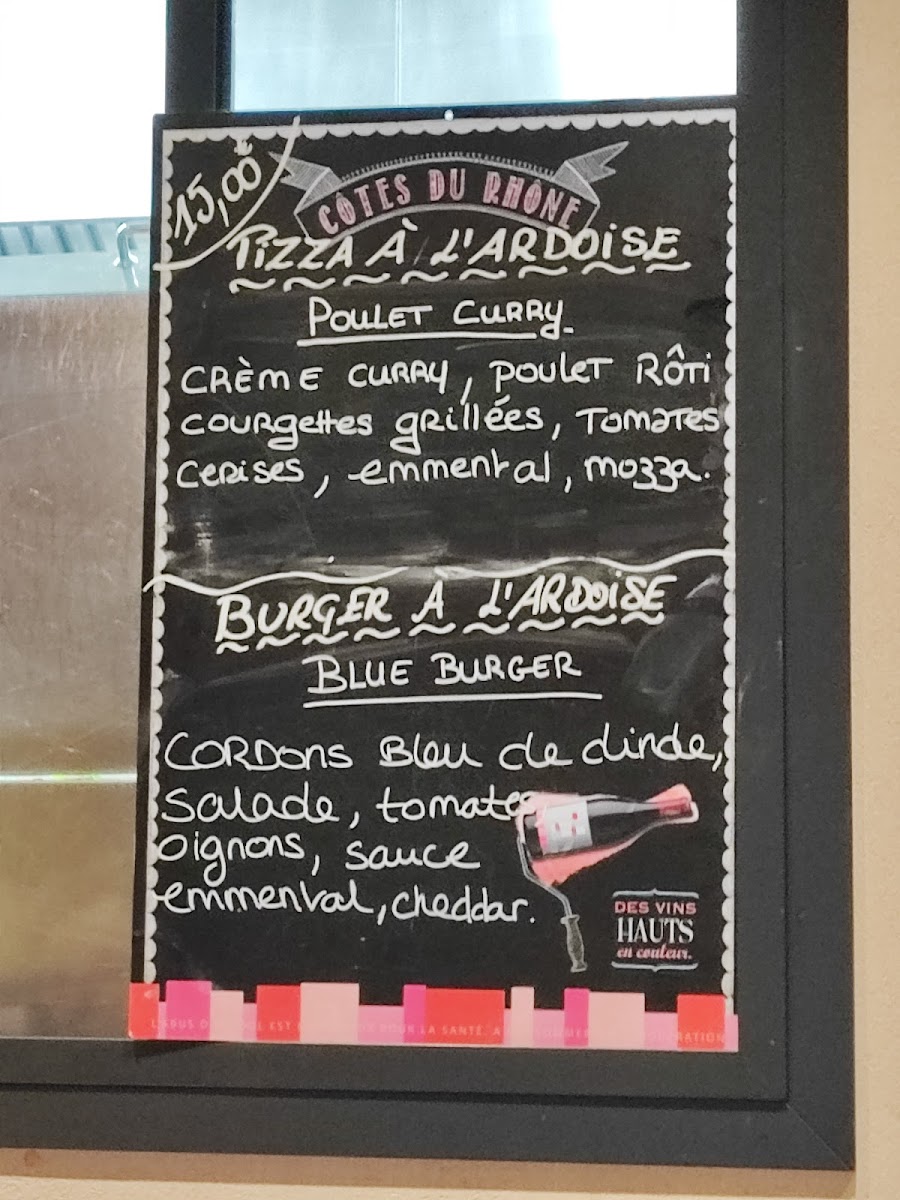 15,00€
CÔTES DU RHÔNE
PIZZA À L'ARDOISE
POULET CURRY
CRÈME CURRY, POULET RÔTI
COURgettes gRILLÉES, TOMATES
CERISES, emmental, mozza.
BURGER A L'ARDOISE
BLUE BURGER
CORDONS Bleu de dinde,
Salade, tomates
oignons, sauce
emmental, cheddar.
DES VINS
HAUTS
en couleur.
EST POUR LA SANTÉ. A